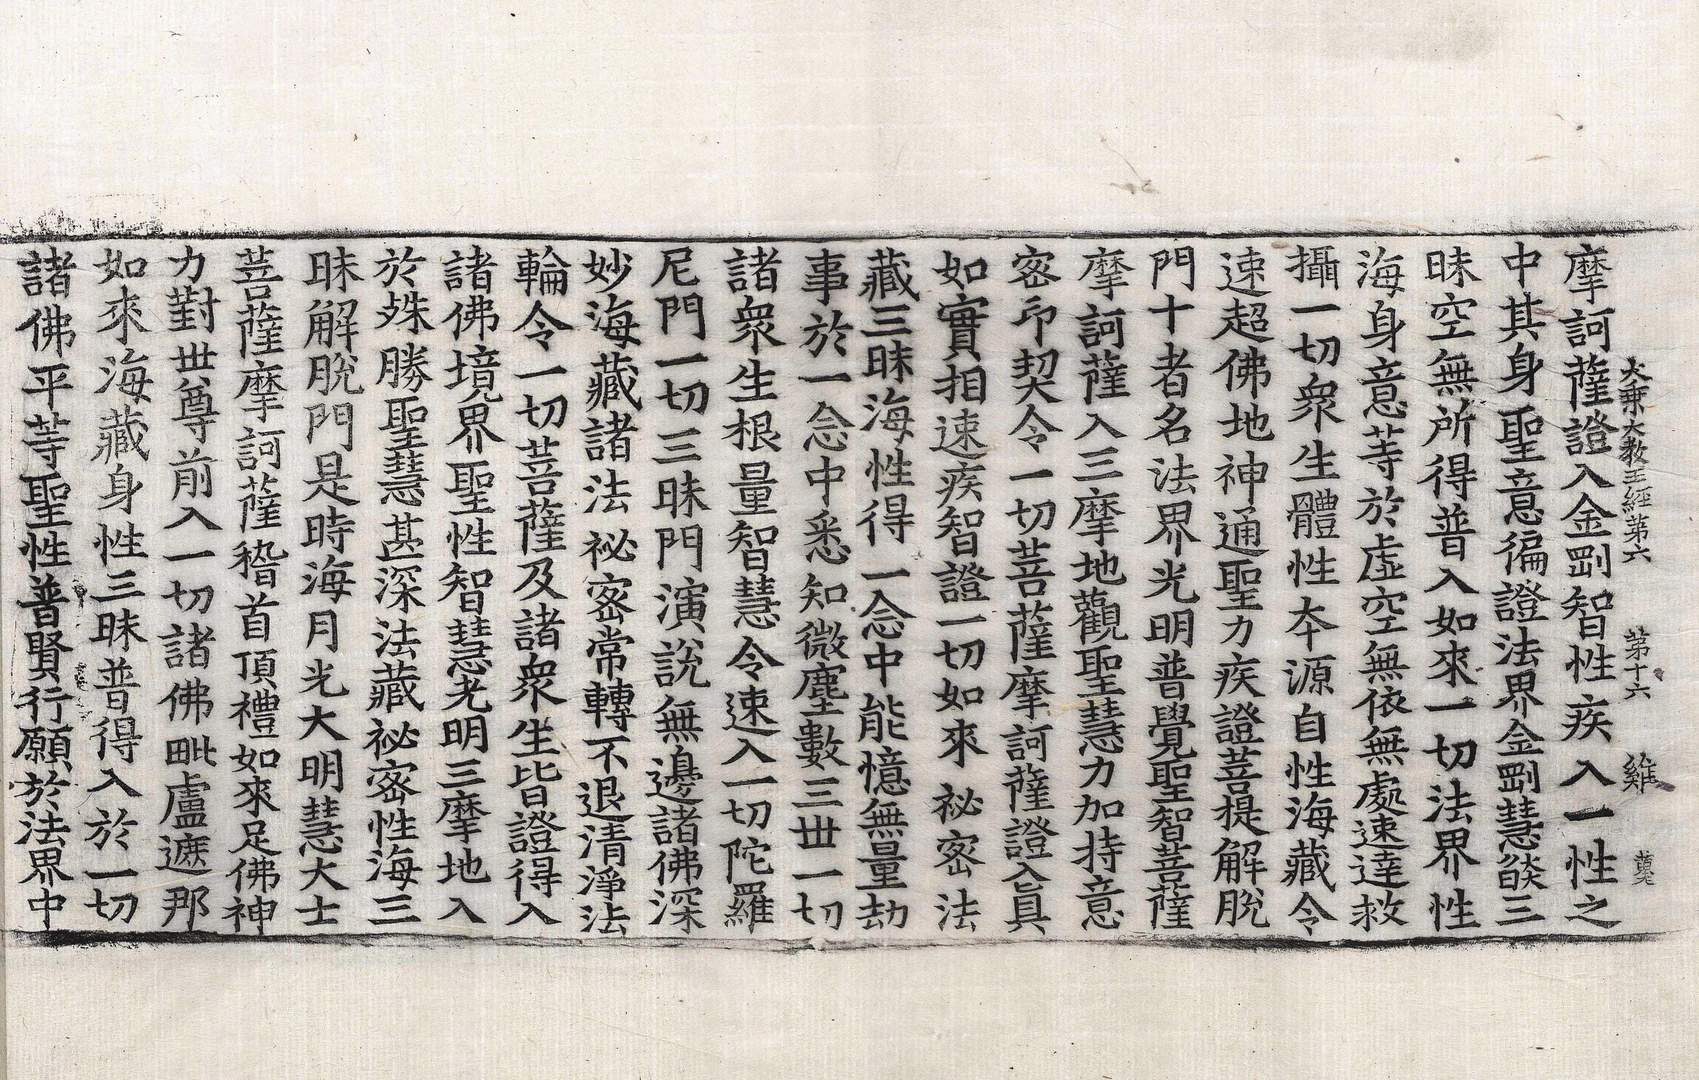 大乗大教王經第六 第十六 雞
摩訶薩證入金剛智性疾入一性之
中其身聖意徧證法界金剛慧燄三
昧空無所得普入如來一切法界性
海身意等於虛空無依無處速達救
攝一切衆生體性夲源自性海藏令
速超佛地神通聖力疾證菩提解脫
門十者名法界光明普覺聖智菩薩
摩訶薩入三摩地觀聖慧力加持意
密印契令一切菩薩摩訶薩證入眞
如實相速疾智證一切如來祕密法
藏三昧海性得一念中能憶無量劫
事於一念中悉知微塵數三世一切
諸衆生根量智慧令速入一切陀羅
尼門一切三昧門演說無邊諸佛深
妙海藏諸法祕密常轉不退清淨法
輪令一切菩薩及諸衆生皆證得入
諸佛境界聖性智慧光明三摩地入
於殊勝聖慧甚深法藏祕密性海三
昧解脫門是時海月光大明慧大士
菩薩摩訶薩稽首頂禮如來足佛神
力對世尊前入一切諸佛毗盧遮那
如來海藏身性三昧普得入於一切
諸佛平等聖性普賢行願於法界中